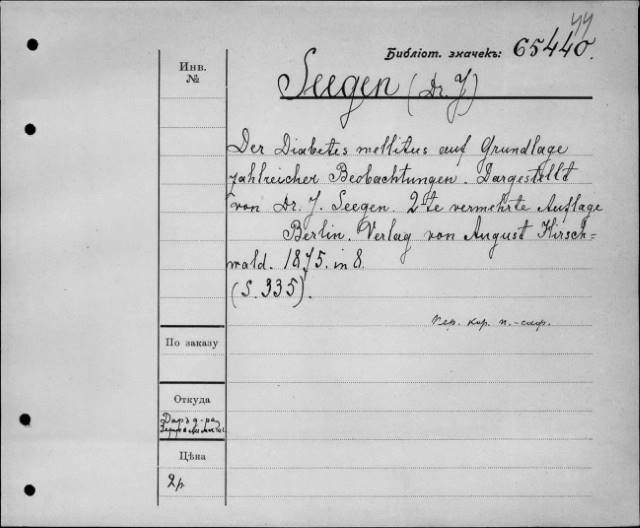 44
Библіот. значекъ: 65440.
Инв.
№
Seegen (Dr. J)
Der Diabetes mellitus auf Grundlage
zahlreicher Beobachtungen. Dargestellt
von Dr. J. Seegen. 2-te vermehrte Auflage
Berlin. Verlag von August Hirsch=
wald. 1875. in 8.
(S. 335).
Пер. кор. п.-
По заказу
Откуда
Даръ д-ра
Цѣна
2р